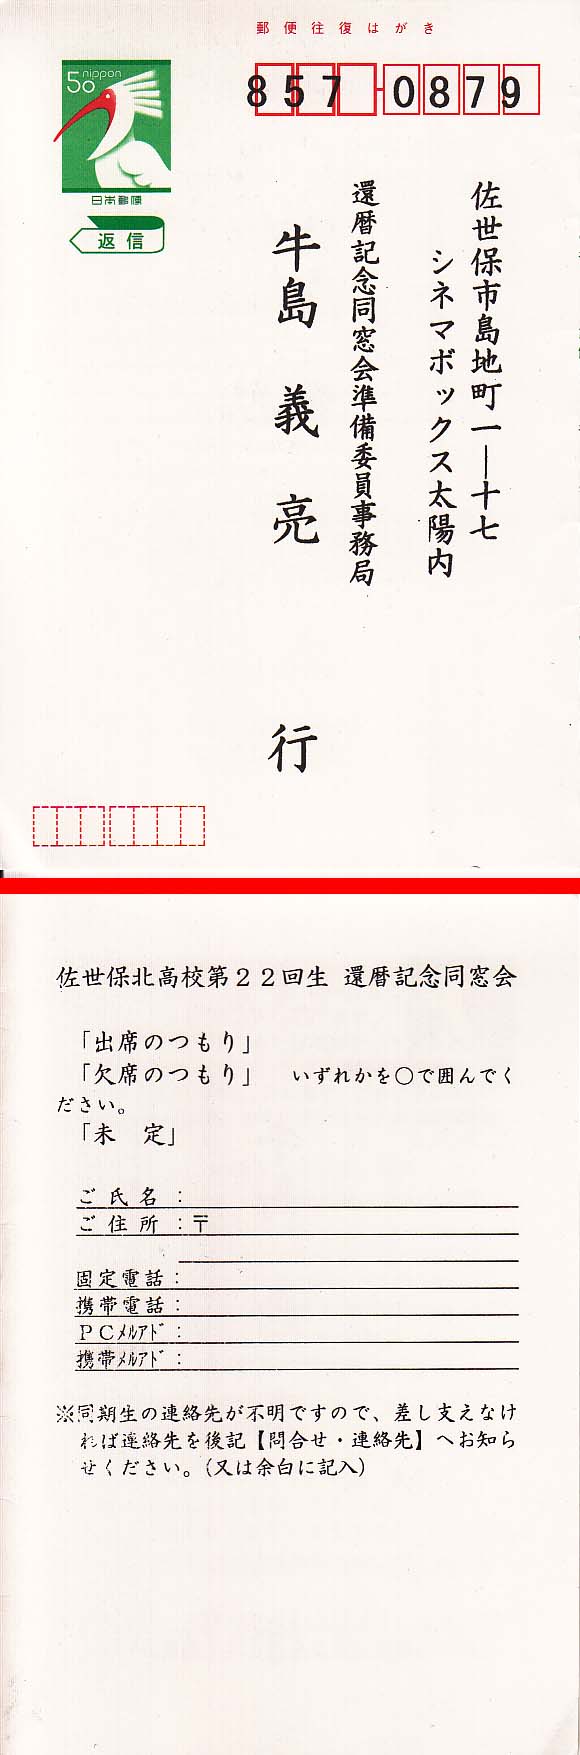 郵便往復はがき
50 nippon
日本郵便
返信
857-0879
佐世保市島地町一―十七
シネマボックス太陽内
還暦記念同窓会準備委員事務局
牛島 義亮 行
佐世保北高校第22回生 還暦記念同窓会
「出席のつもり」
「欠席のつもり」 いずれかを○で囲んでく
ださい。
「未 定」
ご 氏 名 :
ご 住 所 : 〒
固定電話 :
携帯電話 :
PCメルアド :
携帯メルアド :
※同期生の連絡先が不明ですので、差し支えなけ
れば連絡先を後記【問合せ・連絡先】へお知ら
せください。(又は余白に記入)